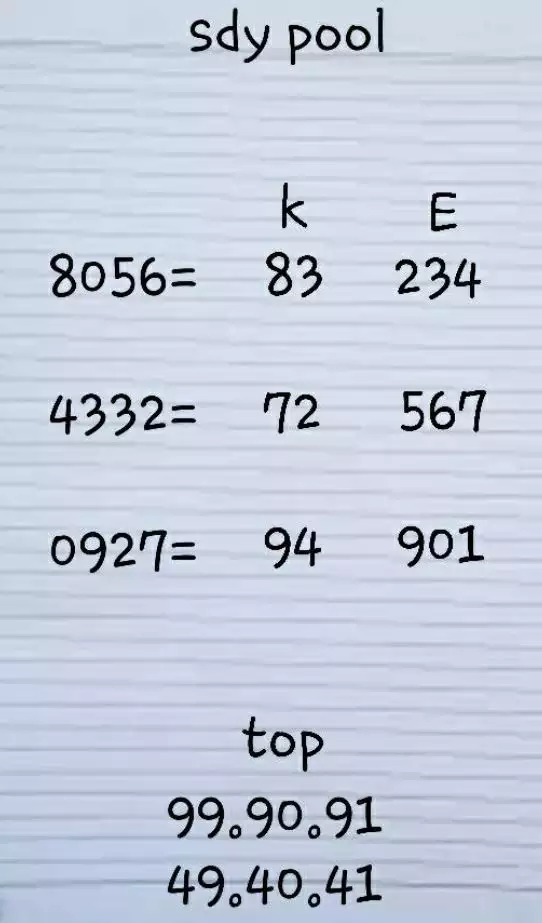 sdy pool
k E
8056= 83 234
4332= 72 567
0927= 94 901
top
99.90.91
49.40.41